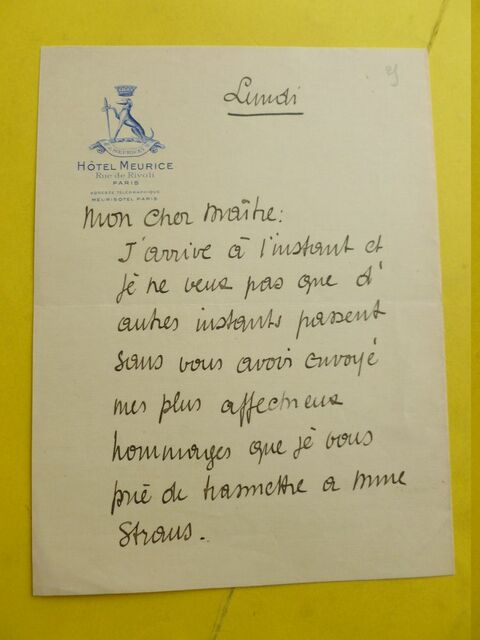 Lundi
HÔTEL MEURICE
Rue de Rivoli
PARIS
ADRESSE TÉLÉGRAPHIQUE
MEURISOTEL PARIS
Mon cher Maître:
J'arrive à l'instant et
jé ne veux pas que d'
autres instants passent
sans vous avoir envoyé
mes plus affectueux
hommages que jé vous
prié de trasmettre a Mme
Straus.